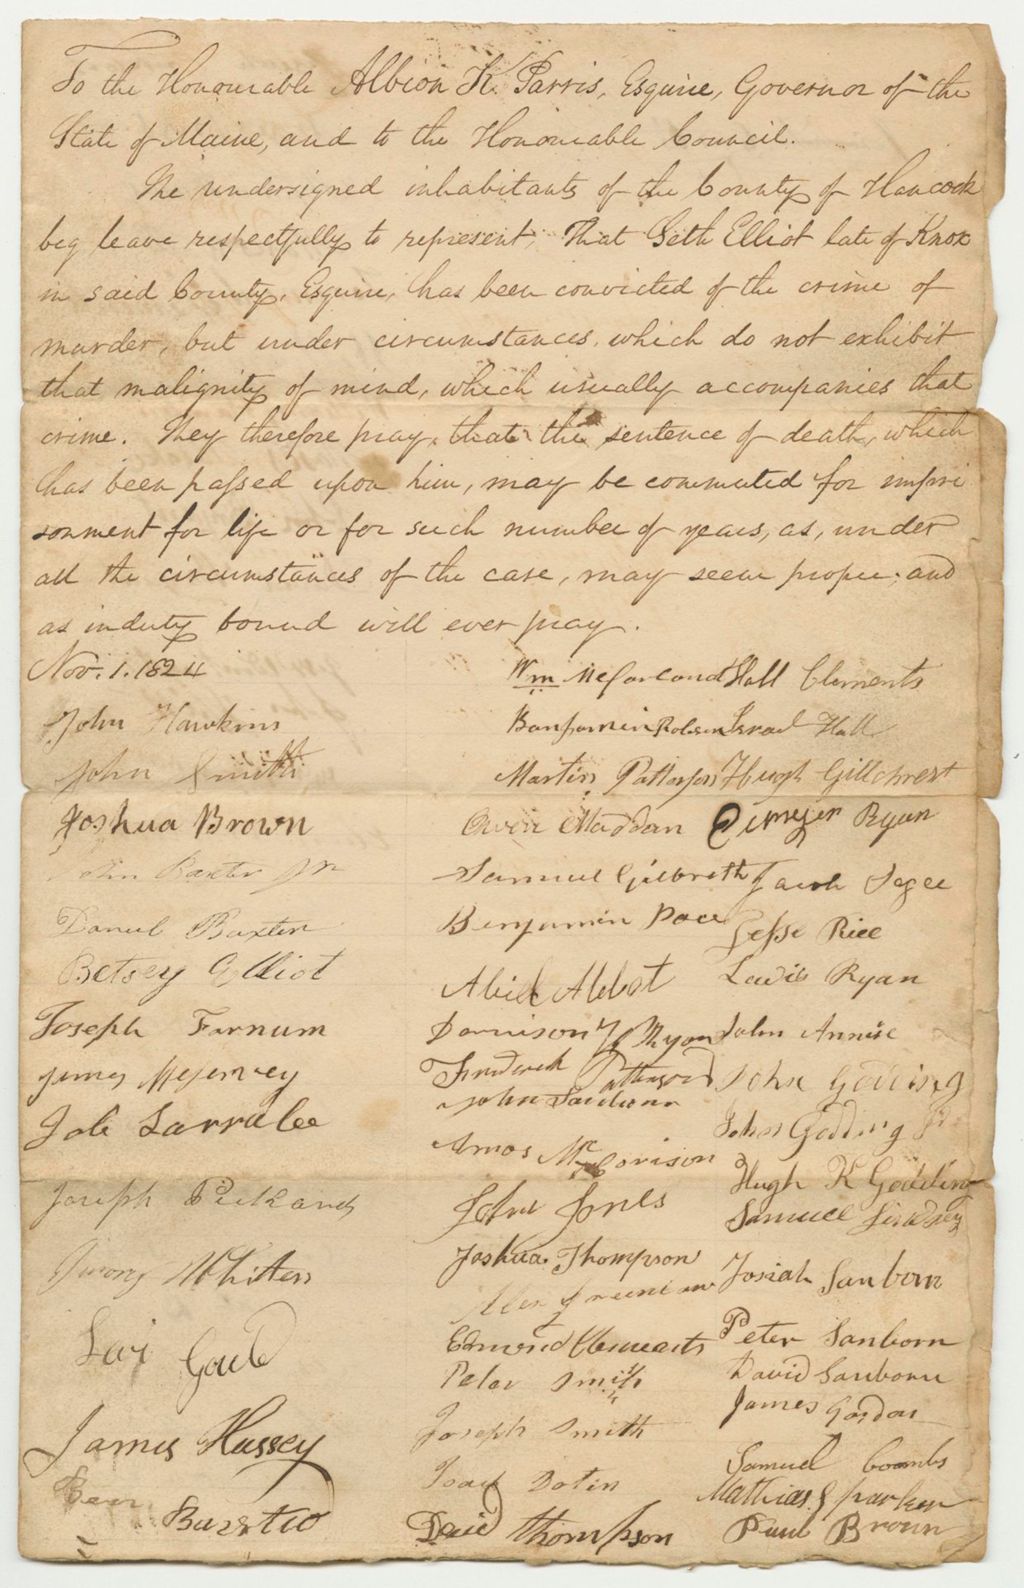 To the Honourable Albion K. Parris, Esquire, Governor of the
State of Maine, and to the Honourable Council.
The undersigned inhabitants of the County of Hancock
beg leave respectfully to represent, That Seth Elliot late of Knox
in said County, Esquire, has been convicted of the crime of
murder, but under circumstances, which do not exhibit
that malignity of mind, which usually accompanies that
crime. They therefore pray, that the sentence of death, which
has been passed upon him, may be commuted for impri
sonment for life or for such number of years, as, under
all the circumstances of the case, may seem proper; and
as in duty bound will ever pray.
Nov. 1. 1824
John Hawkins
John Smith
Joshua Brown
John Baxter Jr
Daniel Baxter
Betsey Elliot
Joseph Farnum
James
Job Larrabee
Joseph
Whiten
Levi Gould
James Hussey
Barstow
Wm McFarland
Benjamin Robson
Martin Patterson
Owen Maddan
Samuel Gilbreth
Benjamin Pace
Abiel Abbot
Ryan
Frederick Patterson
John
Amos McCorison
John Jones
Joshua Thompson
Edmond
Peter Smith
Joseph Smith
Isaac
David Thompson
Hall Clements
Israel Hall
Hugh Gillchrest
Ryan
Jacob Segee
Jesse Rice
Lewis Ryan
John Annise
John Godding
John Godding Jr
Hugh K Godding
Samuel Lindsey
Josiah Sanborn
Peter Sanborn
David Sanborn
James Gordon
Samuel Coombs
Mathias S Parker
Paul Brown